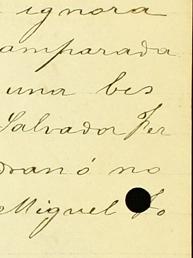 ignora
amparada
una bes
Salvador Fer
dran ó no
Miguel